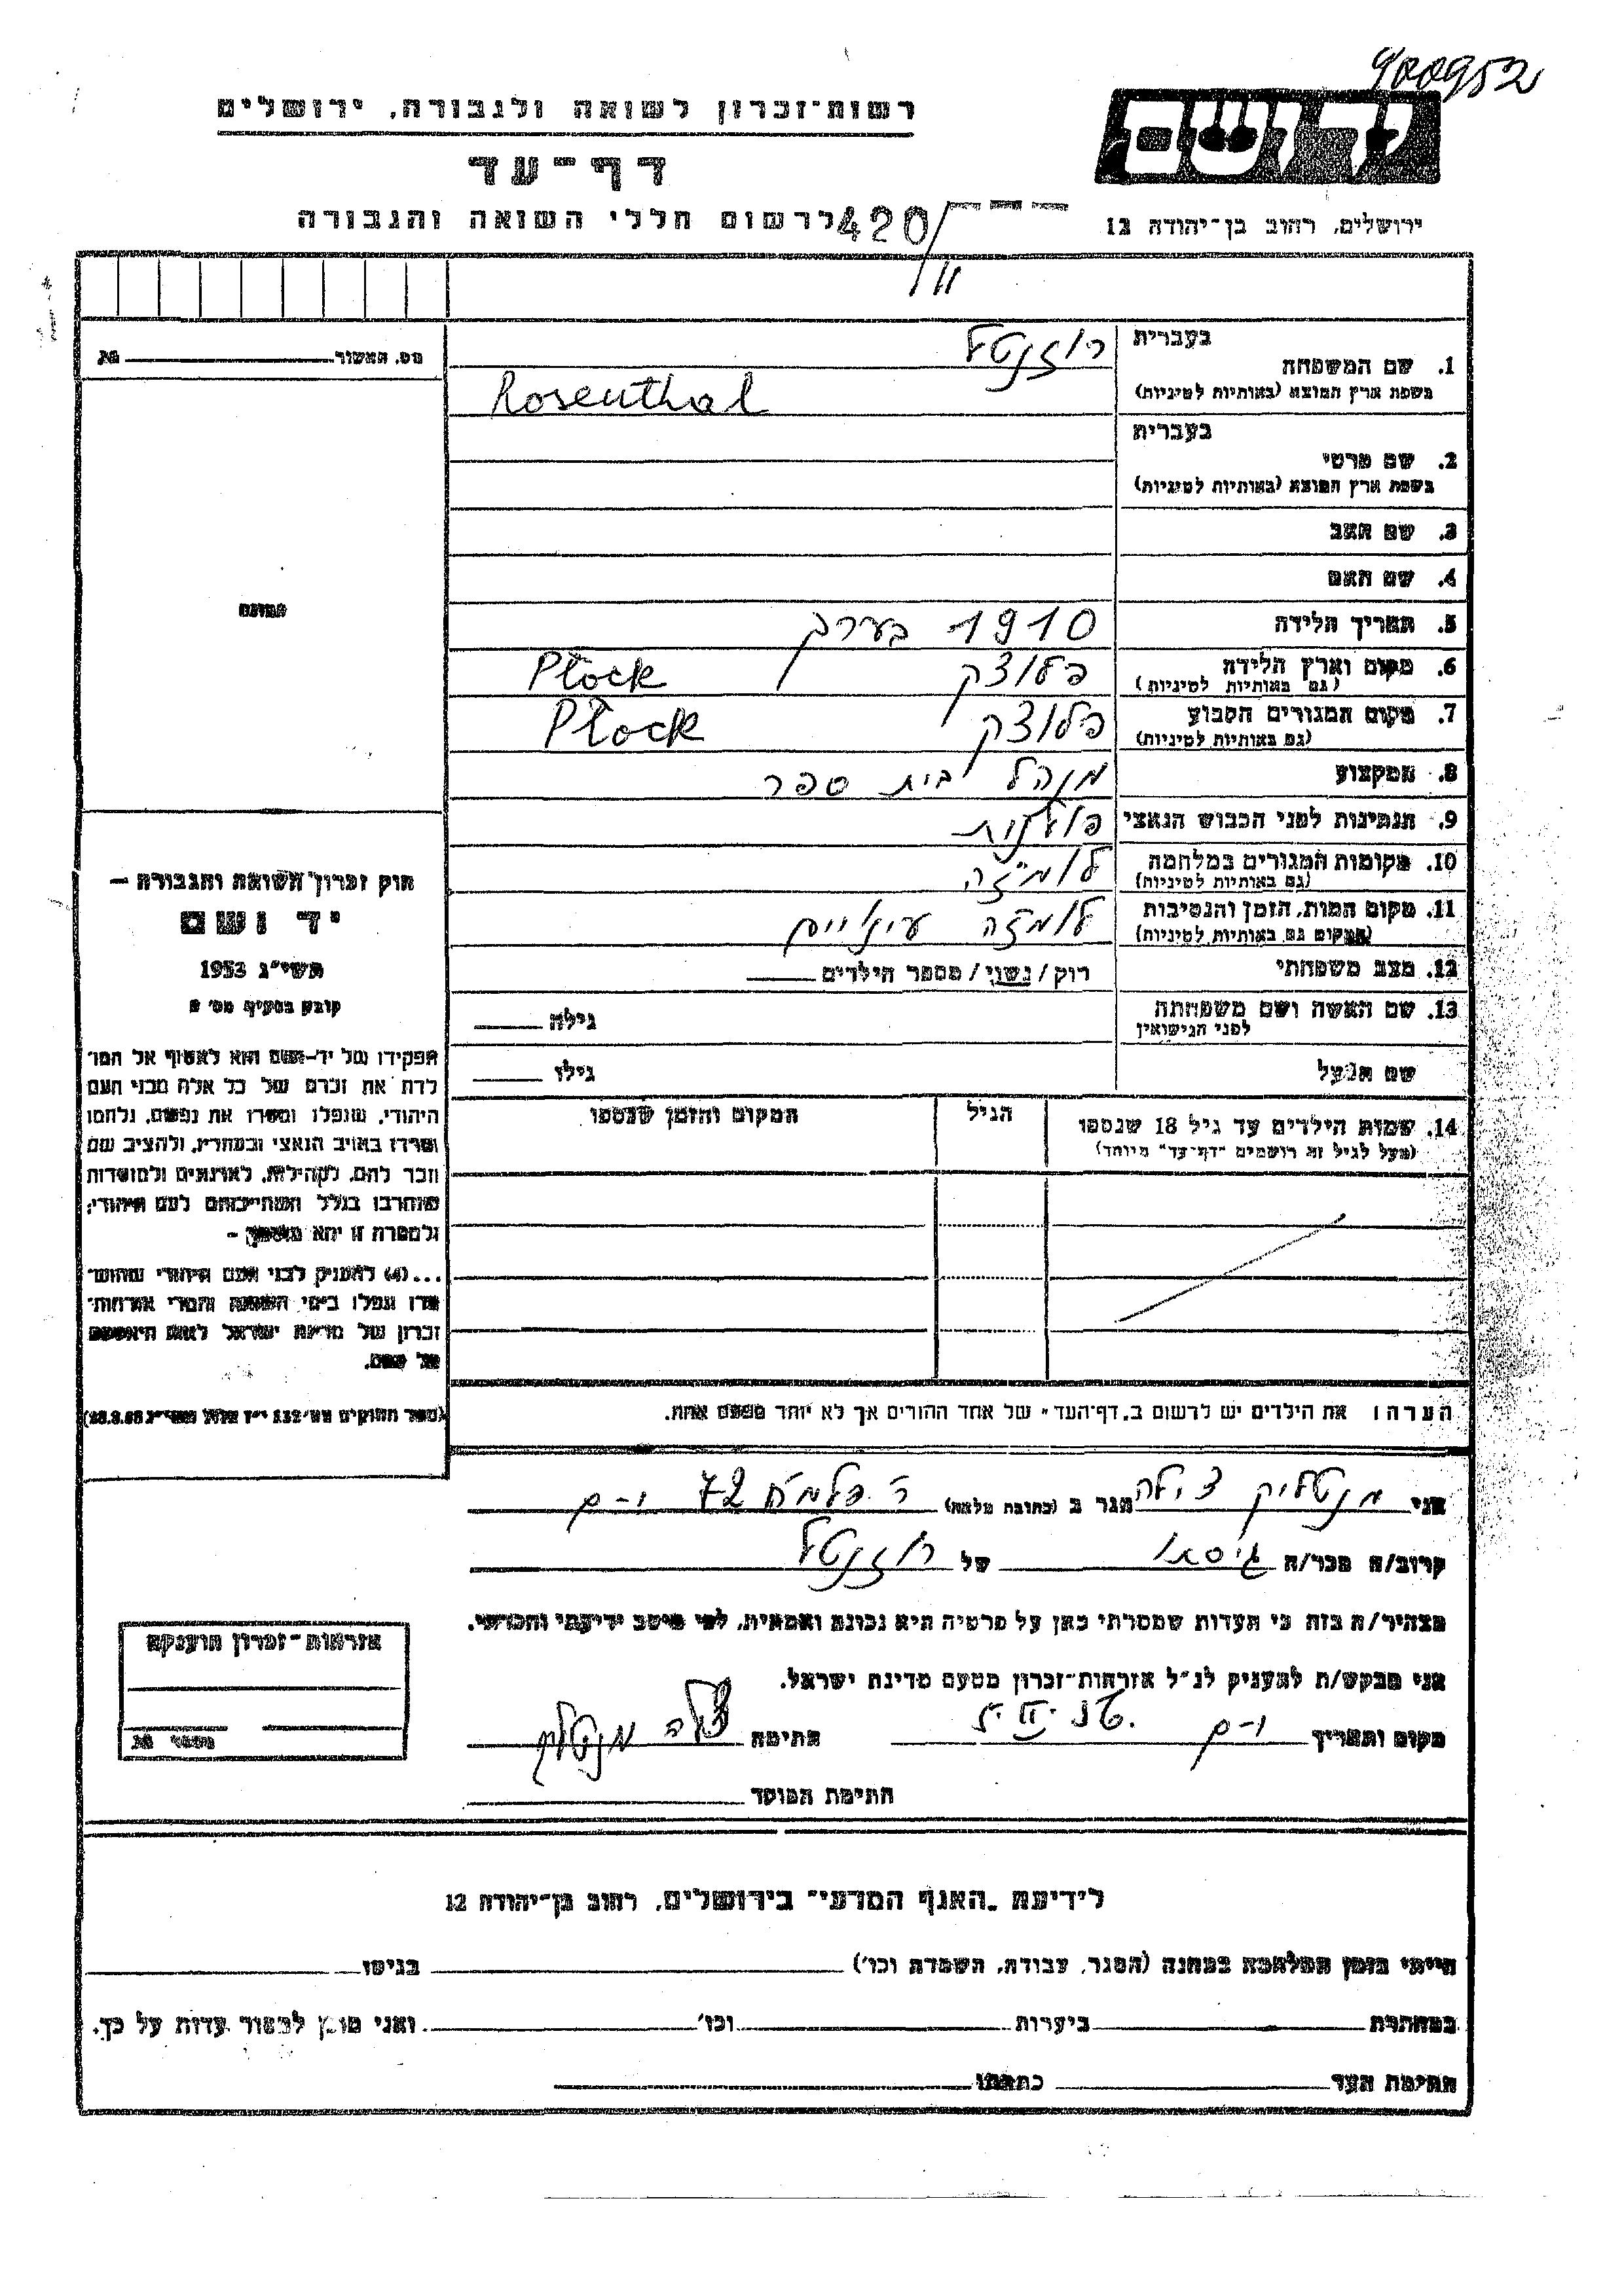 900952
רשות-זכרון לשואה ולגבורה, ירושלים
ידושם
דף-עד
לרשום חללי השואה והגבורה
420/
11
ירושלים, רחוב בן-יהודה 12
מס. האשור
בעברית
1. שם המשפחה
רוזנטל
בשפת ארץ המוצא (באותיות לטיניות)
Rosenthal
בעברית
2. שם פרטי
בשפת ארץ המוצא (באותיות לטיניות)
3. שם האב
4. שם האם
תמונה
5. תאריך הלידה
1910 בערך
6. מקום וארץ הלידה
(גם באותיות לטיניות)
פלוצק Płock
7. מקום המגורים הקבוע
(גם באותיות לטיניות)
פלוצק Płock
8. המקצוע
מנהל בית ספר
9. הנתינות לפני הכבוש הנאצי
פולנית
10. מקומות המגורים במלחמה
(גם באותיות לטיניות)
לומז'ה
11. מקום המות, הזמן והנסיבות
(המקום גם באותיות לטיניות)
לומזה
12. מצב משפחתי
רוק/נשוי/מספר הילדים
13. שם האשה ושם משפחתה
לפני הנישואין
גילה
שם הבעל
גילו
14. שמות הילדים עד גיל 18 שנספו
(מעל לגיל זה רושמים "דף-עד" מיוחד)
הגיל
המקום והזמן שנספו
הערה: את הילדים יש לרשום ב"דף-העד" של אחד ההורים אך לא יותר מפעם אחת.
חוק זכרון השואה והגבורה —
יד ושם
תשי"ג 1953
קובע בסעיף מס' 2
תפקידו של יד-ושם הוא לאסוף אל המו־
לדת את זכרם של כל אלה מבני העם
היהודי, שנפלו ומסרו את נפשם, נלחמו
ומרדו באויב הנאצי ובעוזריו, ולהציב שם
וזכר להם, לקהילות, לארגונים ולמוסדות
שנחרבו בגלל השתייכותם לעם היהודי;
ולמטרה זו יהא מוסמך —
...(4) להעניק לבני העם היהודי שהוש־
מדו ונפלו בימי השואה והמרי אזרחות־
זכרון של מדינת ישראל לאות היאספם
אל עמם.
אני מנטליק צילה הגר ב (כתובת מלאה) ר. פלמח 72 י-ם
קרוב/ה מכר/ה גיסתו של רוזנטל
מצהיר/ה בזה כי העדות שמסרתי כאן על פרטיה היא נכונה ואמתית, לפי מיטב ידיעתי והכרתי.
אני מבקש/ת להעניק לנ"ל אזרחות-זכרון מטעם מדינת ישראל.
מקום ותאריך י-ם
חתימה צילה מנטליק
חתימת המוסד
אזרחות-זכרון הוענקה
מספר
לידיעת "האגף המדעי" בירושלים, רחוב בן-יהודה 12
הייתי בזמן המלחמה במחנה (הסגר, עבודה, השמדה וכו') בגיטו
במחתרת ביערות וכו' ואני מוכן למסור עדות על כך.
חתימת העד כתבתו